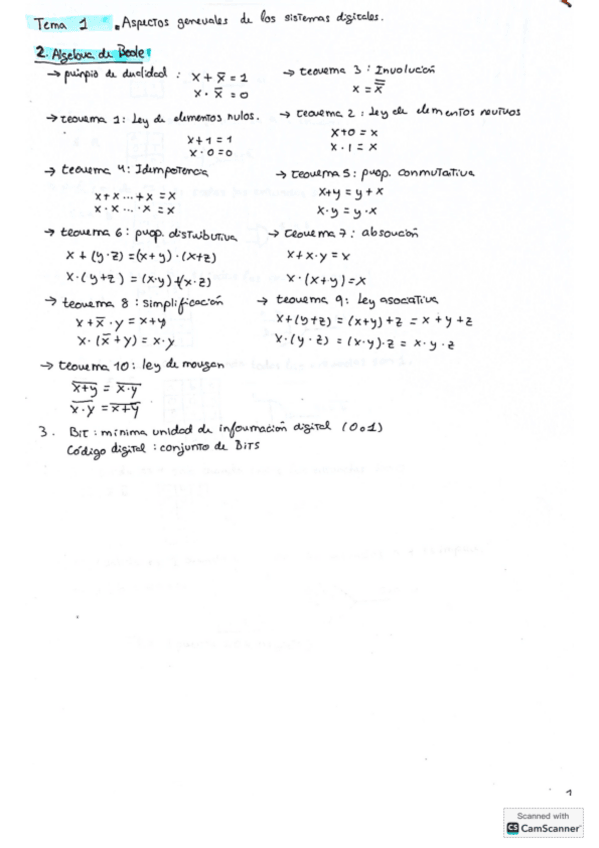 Tema 1 . Aspectos generales de los sistemas digitales.
2. Algebra de Boole
→ prinpio de dualidad : x + x̅ = 1
x · x̅ = 0
→ teorema 3 : Involución
x = x̿
→ teorema 1: Ley de elementos nulos.
x + 1 = 1
x · 0 = 0
→ teorema 2 : Ley de elementos neutros
x+0 = x
x · 1 = x
→ teorema 4: Idempotencia
x + x ... + x = x
x · x ... · x = x
→ teorema 5: prop. conmutativa
x+y = y + x
x·y = y·x
→ teorema 6 : prop. distributiva
x + (y · z) = (x + y) · (x+z)
x · (y + z) = (x·y) + (x·z)
→ teorema 7 : absorción
x + x · y = x
x · (x + y) = x
→ teorema 8 : simplificación
x + x̅ · y = x+y
x · (x̅ + y) = x · y
→ teorema 9: Ley asociativa
x + (y + z) = (x+y) + z = x + y + z
x · (y · z) = (x·y) · z = x · y · z
→ teorema 10: ley de morgan
x̅+̅y̅ = x̅·̅y̅
x̅·̅y̅ = x̅+̅y̅
3. Bit : mínima unidad de información digital (0 o 1)
Código digital : conjunto de BITS
1
Scanned with
CS CamScanner